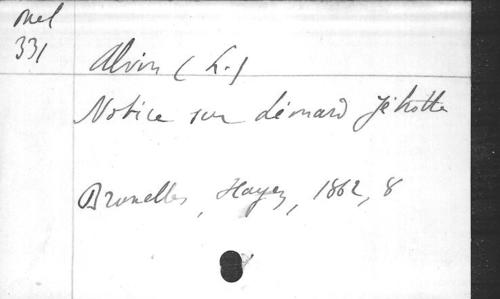 Mel
331
Alvin (L.)
Notice sur Léonard Jéhotte
Bruxelles, Hayez, 1862, 8